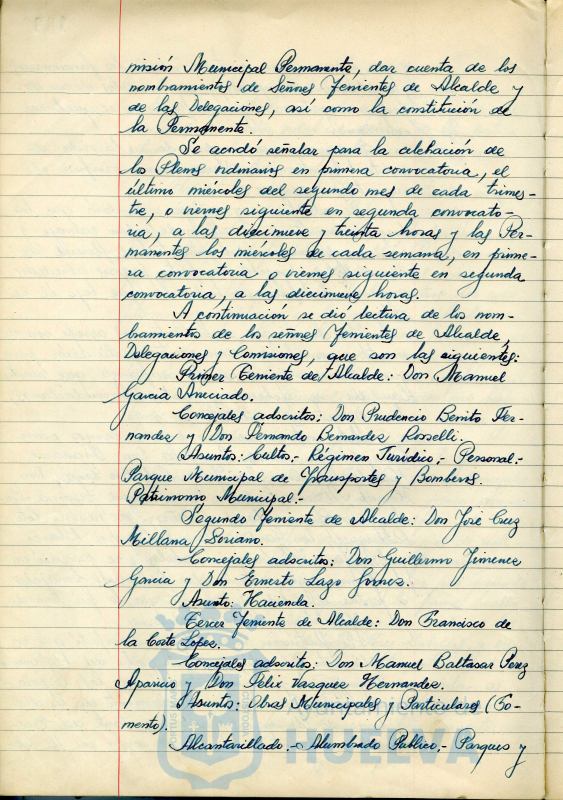 misión Municipal Permanente, dar cuenta de los
nombramientos de Señores Tenientes de Alcalde y
de las Delegaciones, así como la constitución de
la Permanente.
Se acordó señalar para la celebración de
los Plenos ordinarios en primera convocatoria, el
último miércoles del segundo mes de cada trimes-
tre, o viernes siguiente en segunda convocato-
ria, a las diecinueve y treinta horas y las Per-
manentes los miércoles de cada semana, en prime-
ra convocatoria o viernes siguiente en segunda
convocatoria, a las diecinueve horas.
A continuación se dió lectura de los nom-
bramientos de los señores Tenientes de Alcalde,
Delegaciones y Comisiones, que son las siguientes:
Primer Teniente de Alcalde: Don Manuel
Garcia
Concejales adscritos: Don Prudencio Benito Fer-
nandez y Don Fernando Bernardez Rosselli.
Asuntos: Cultos.- Régimen Jurídico.- Personal.-
Parque Municipal de Transportes y Bomberos.
Patrimonio Municipal.-
Segundo Teniente de Alcalde: Don José Cruz
Millana Soriano.
Concejales adscritos: Don Guillermo Jimenez
Garcia y Don Ernesto Lazo Gomez.
Asunto: Hacienda.
Tercer Teniente de Alcalde: Don Francisco de
la Corte Lopez.
Concejales adscritos: Don Manuel Baltasar Perez
Aparicio y Don Felix Vasquez Hernandez.
Asuntos: Obras Municipales y Particulares (Fo-
mento).
Alcantarillado.- Alumbrado Publico.- Parques y
Ayuntamiento de
HUELVA